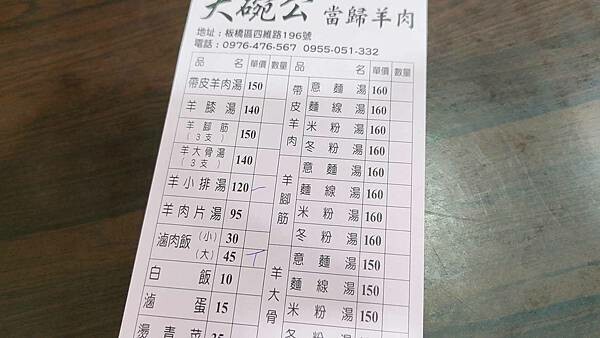 大碗公 當歸羊肉
地址：板橋區四維路196號
電話：0976-476-567 0955-051-332
品 名 單價 數量 品 名 單價 數量
帶皮羊肉湯 150
羊膝湯 140
羊腳筋（3支） 150
羊大骨湯（3支） 140
羊小排湯 120
羊肉片湯 95
滷肉飯 (小) 30
(大) 45
白飯 10
滷蛋 15
燙青菜 35
帶皮羊肉
意麵湯 160
麵線湯 160
米粉湯 160
冬粉湯 160
羊腳筋
意麵湯 160
麵線湯 160
米粉湯 160
冬粉湯 160
羊大骨
意麵湯 150
麵線湯 150
米粉湯 150
冬粉湯 150